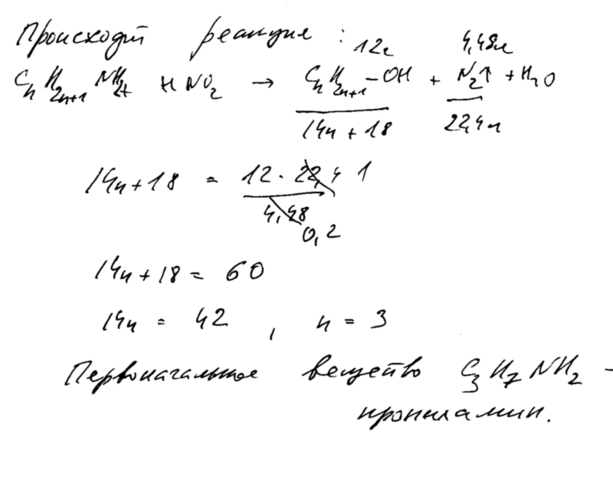 Происходит реакция:
12г 4,48л
CnH2n+1NH2 + HNO2 → CnH2n+1-OH + N2↑ + H2O
14n + 18 22,4л
14n + 18 = 12 · 22,4 1
4,48
0,2
14n + 18 = 60
14n = 42 , n = 3
Первоначальное вещество C3H7NH2 -
пропиламин.